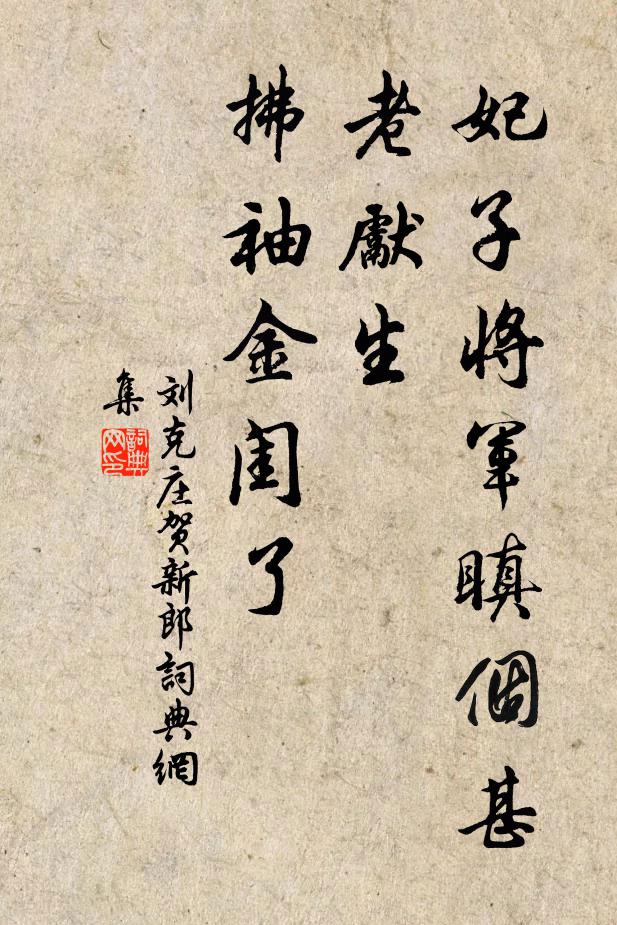 妃子將軍瞋個甚
老獻生
拂袖金闺了
刘克庄贺新郎詞典網
集
詞典
网印